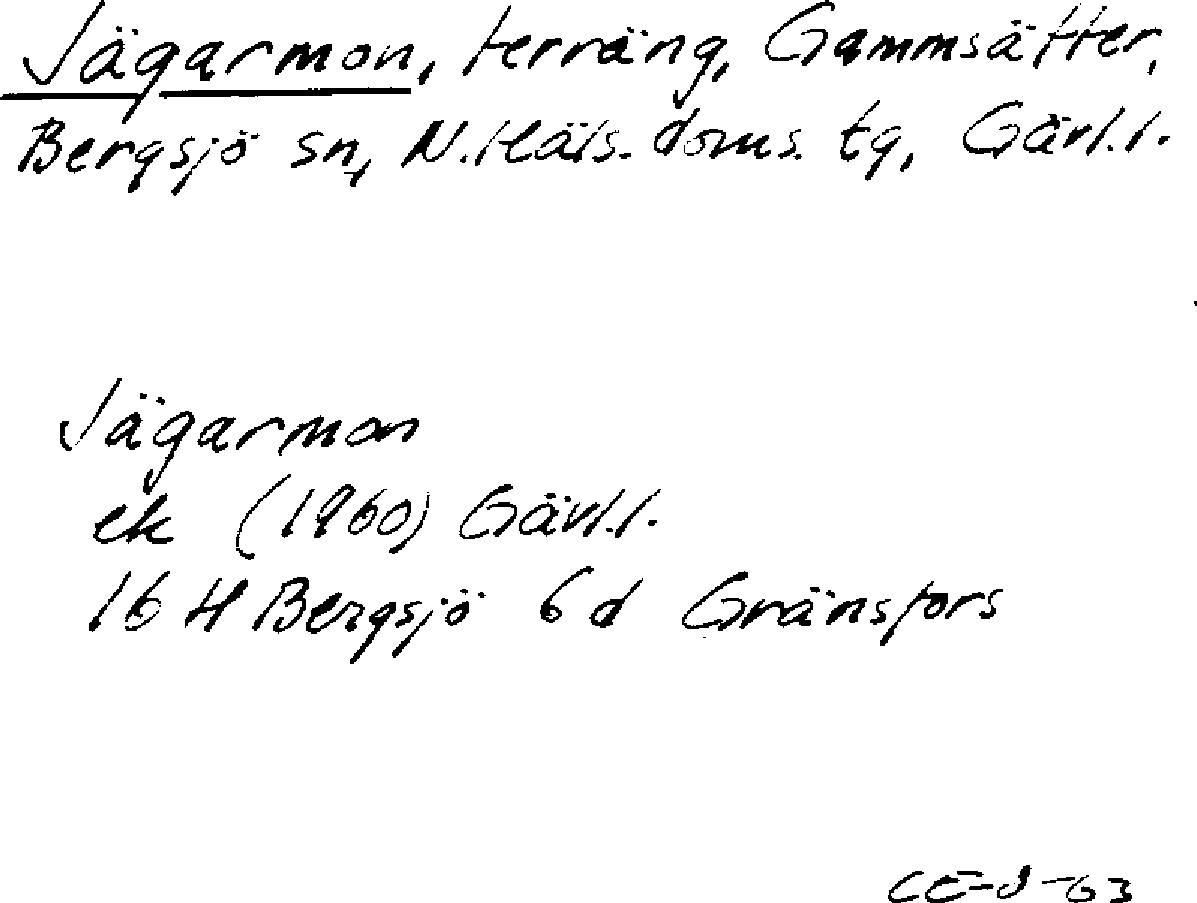 Jägarmon, terräng, Gammsätter,
Bergsjö sn, N. Häls. doms. tg, Gävl. l.
Jägarmon
ek (1960) Gävl. l.
16 H Bergsjö 6 d Gränsfors
CE-J-63